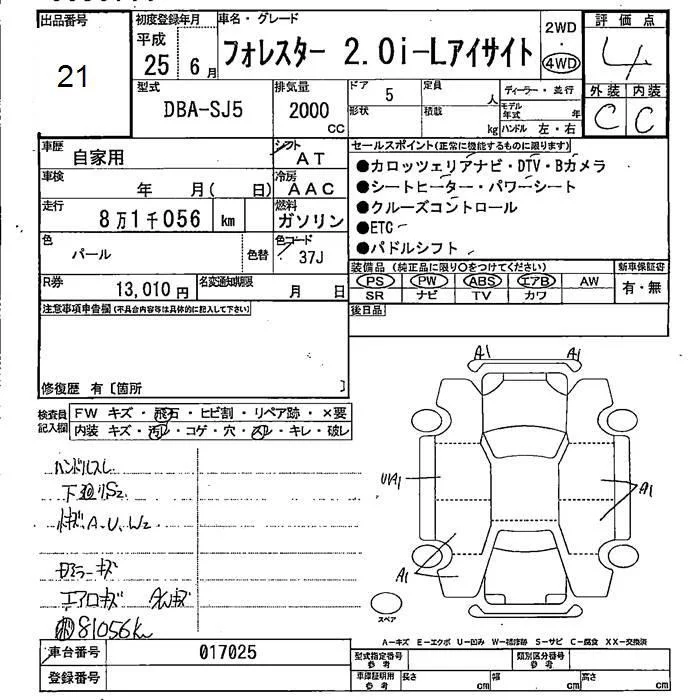 出品番号 初度登録年月 車名・グレード 2WD 評価点
21 平成 25 6月 フォレスター 2.0i-Lアイサイト ・ 4WD 4
型式 排気量 ドア 5 定員 人 ディーラー・並行 外装 内装
DBA-SJ5 2000 cc 形状 積載 kg モデル年式 年 ハンドル 左・右 C C
車歴 自家用 シフト AT セールスポイント(正常に機能するものに限ります)
●カロッツェリアナビ・DTV・Bカメラ
車検 年 月( 日) 冷房 AAC ●シートヒーター・パワーシート
走行 8万1千056 km 燃料 ガソリン ●クルーズコントロール
●ETC
色 パール 色替 色コード 37J ●パドルシフト
装備品(純正品に限り○をつけてください) 新車保証書
R券 13,010円 名変通知期限 月 日 PS PW ABS エアB AW 有・無
SR ナビ TV カワ
注意事項申告欄(不具合内容等は具体的に記入して下さい) 後日品
修復歴 有〔箇所 〕
検査員記入欄 FW キズ・飛石・ヒビ割・リペア跡・×要
内装 キズ・汚レ・コゲ・穴・スレ・キレ・破レ
A1 A1
ハンドルスレ
下廻りS2
U1A1 A1
小キズ、A、U、W2
ミラーキズ
A1
エアロキズ AWキズ
81056km
スペア
A-キズ E-エクボ U-凹み W-補修跡 S-サビ C-腐食 XX-交換済
車台番号 017025 型式指定番号 参考 類別区分番号 参考
登録番号 車庫証明用 参考 長さ cm 幅 cm 高さ cm